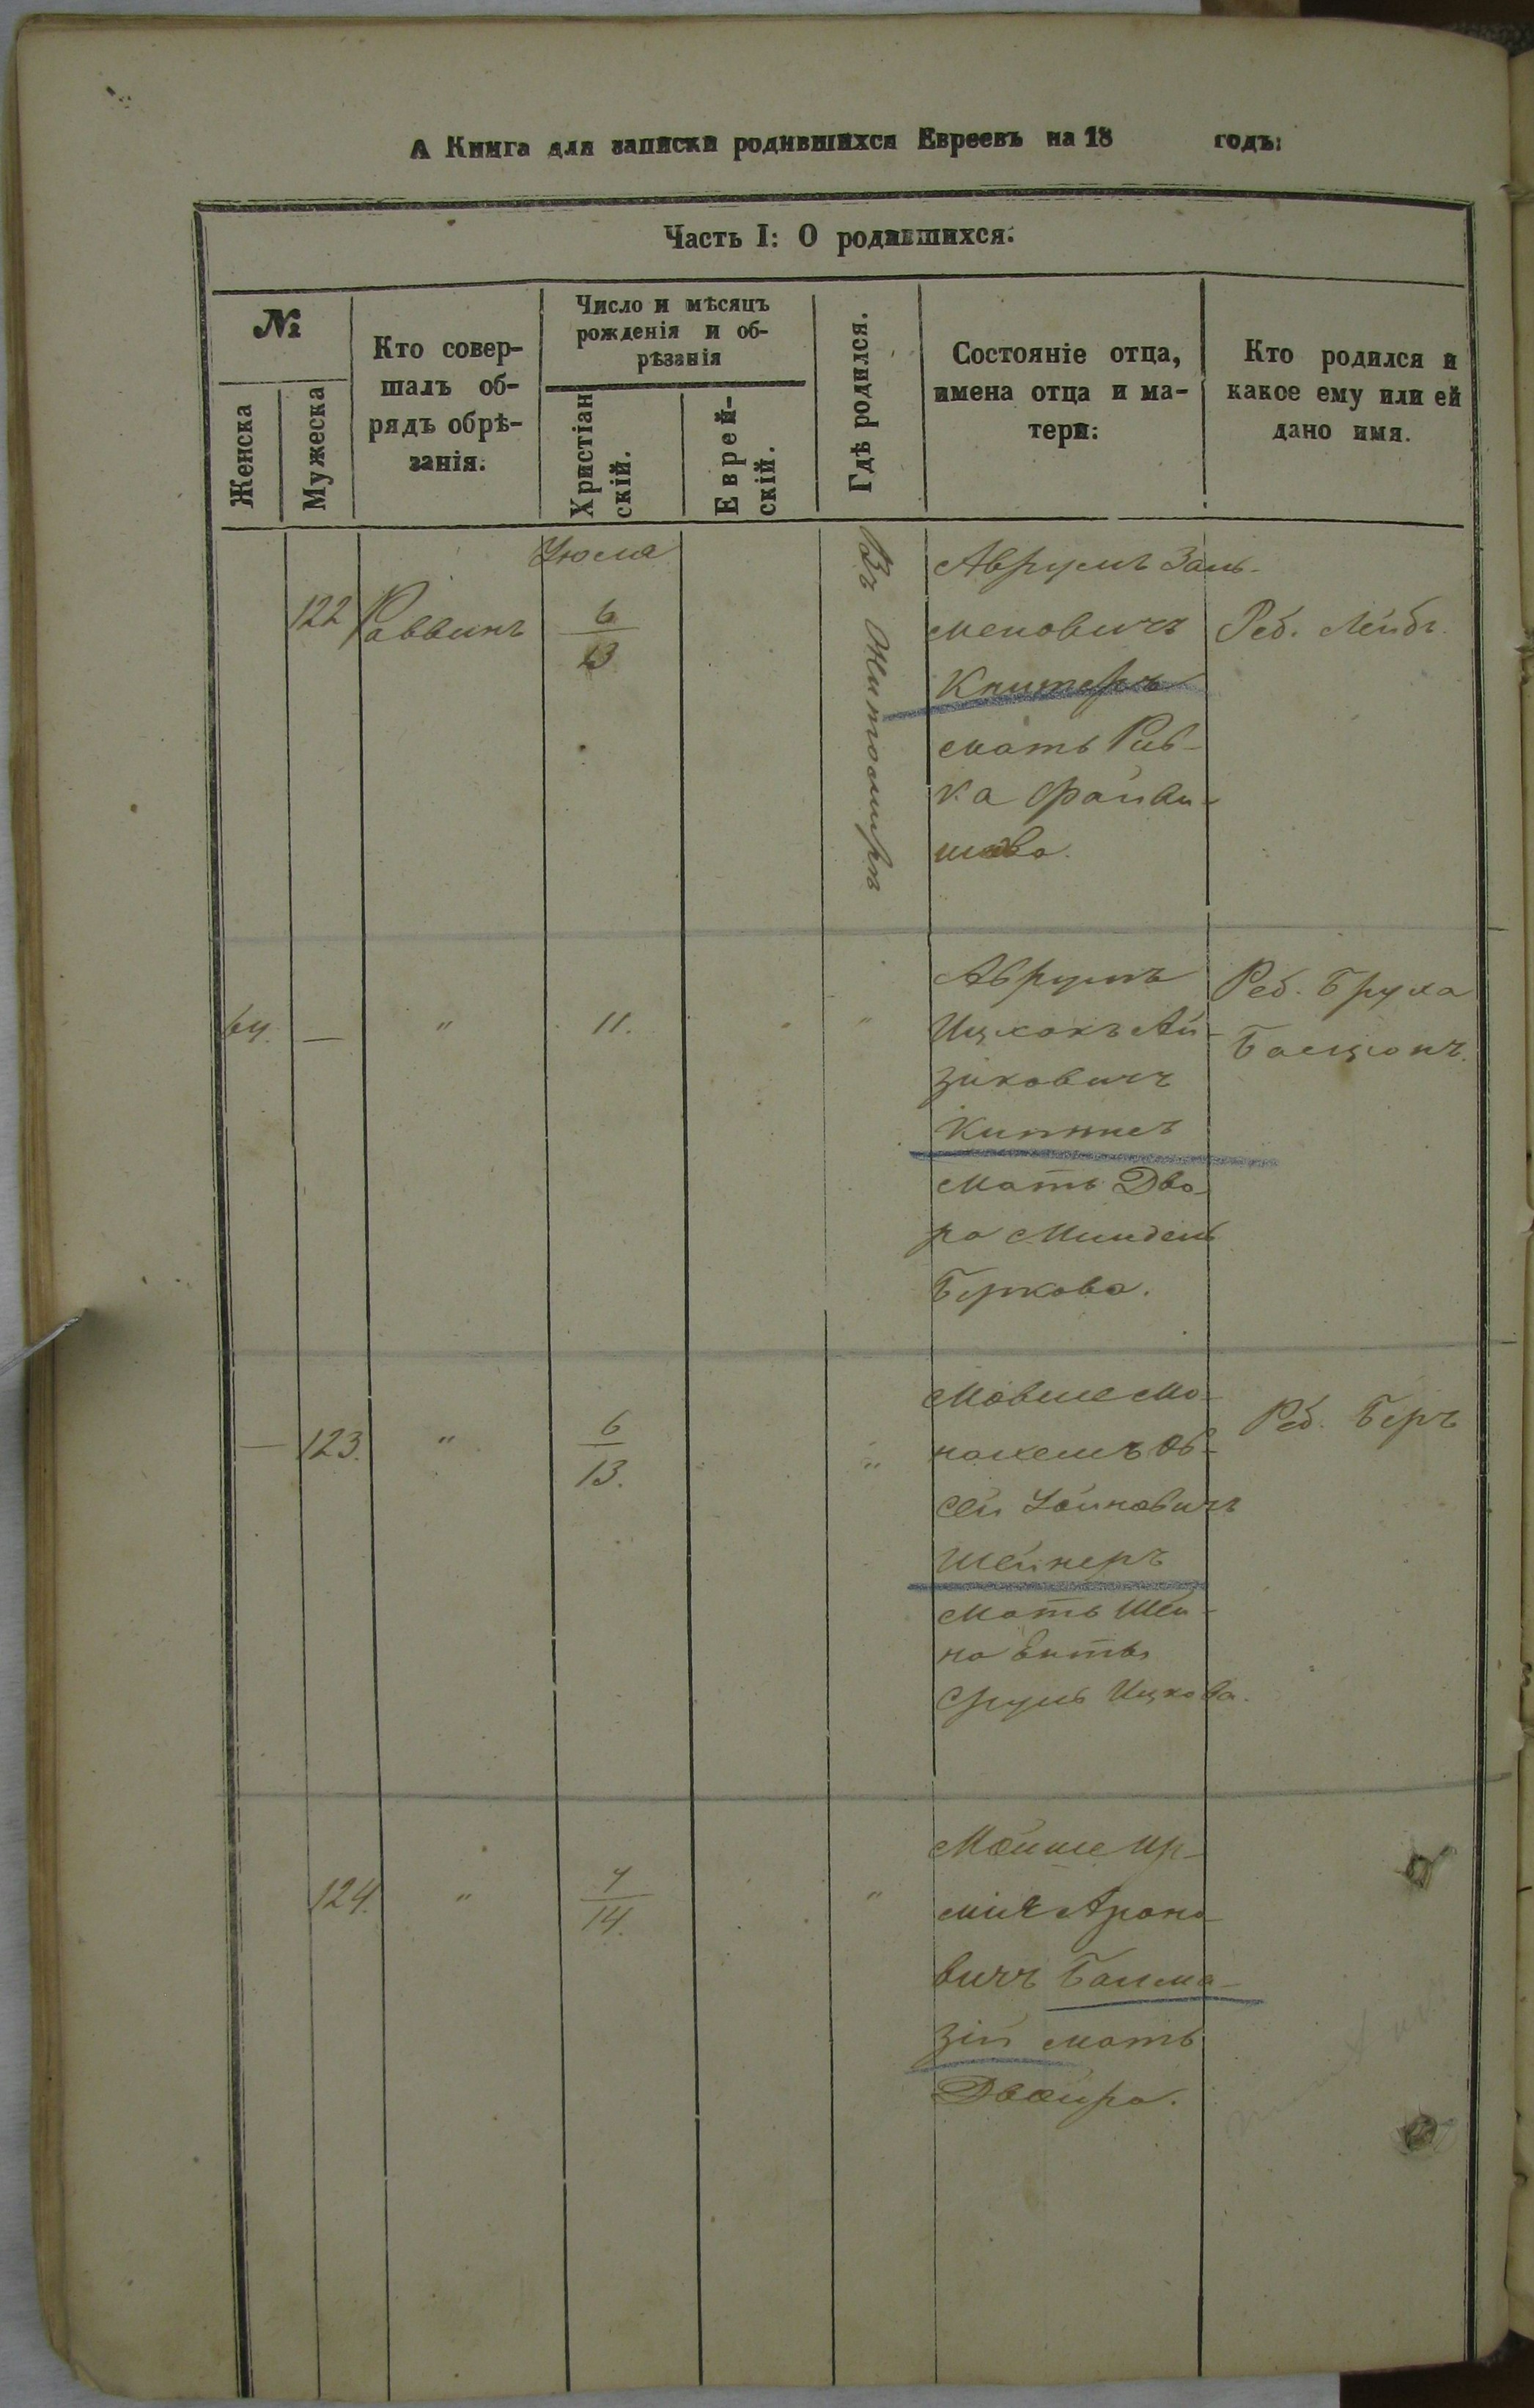 А Книга для записки родившихся Евреевъ на 18 годъ:
Часть I: О родившихся.
№
Женска
Мужеска
Кто совер-
шалъ об-
рядъ обрѣ-
занія.
Число и мѣсяцъ
рожденія и об-
рѣзанія
Христіан
скій.
Еврей-
скій.
Гдѣ родился.
Состояніе отца,
имена отца и ма-
тери:
Кто родился и
какое ему или ей
дано имя.
122
Раввинъ
Іюля
6
13
Въ Житомирѣ
Аврумъ Заль-
меновичъ
Книтеръ
мать Рив-
ка Файви-
шова.
Реб. Лейбъ.
64.
—
"
11.
"
Аврумъ
Ицхокъ Ай-
зиковичъ
Кипнисъ
мать Дво-
ра Миндель
Беркова.
Реб. Бруха
Басціонъ.
—
123.
"
6
13.
"
Мовше Мо-
нахемъ Ов-
сей
Шейнеръ
мать Шей-
на
Сруль Ицкова.
Реб. Беръ
124.
"
7
14.
"
Мойше Ир-
мія Ароно-
вичъ Балма-
зій мать
Двойра.